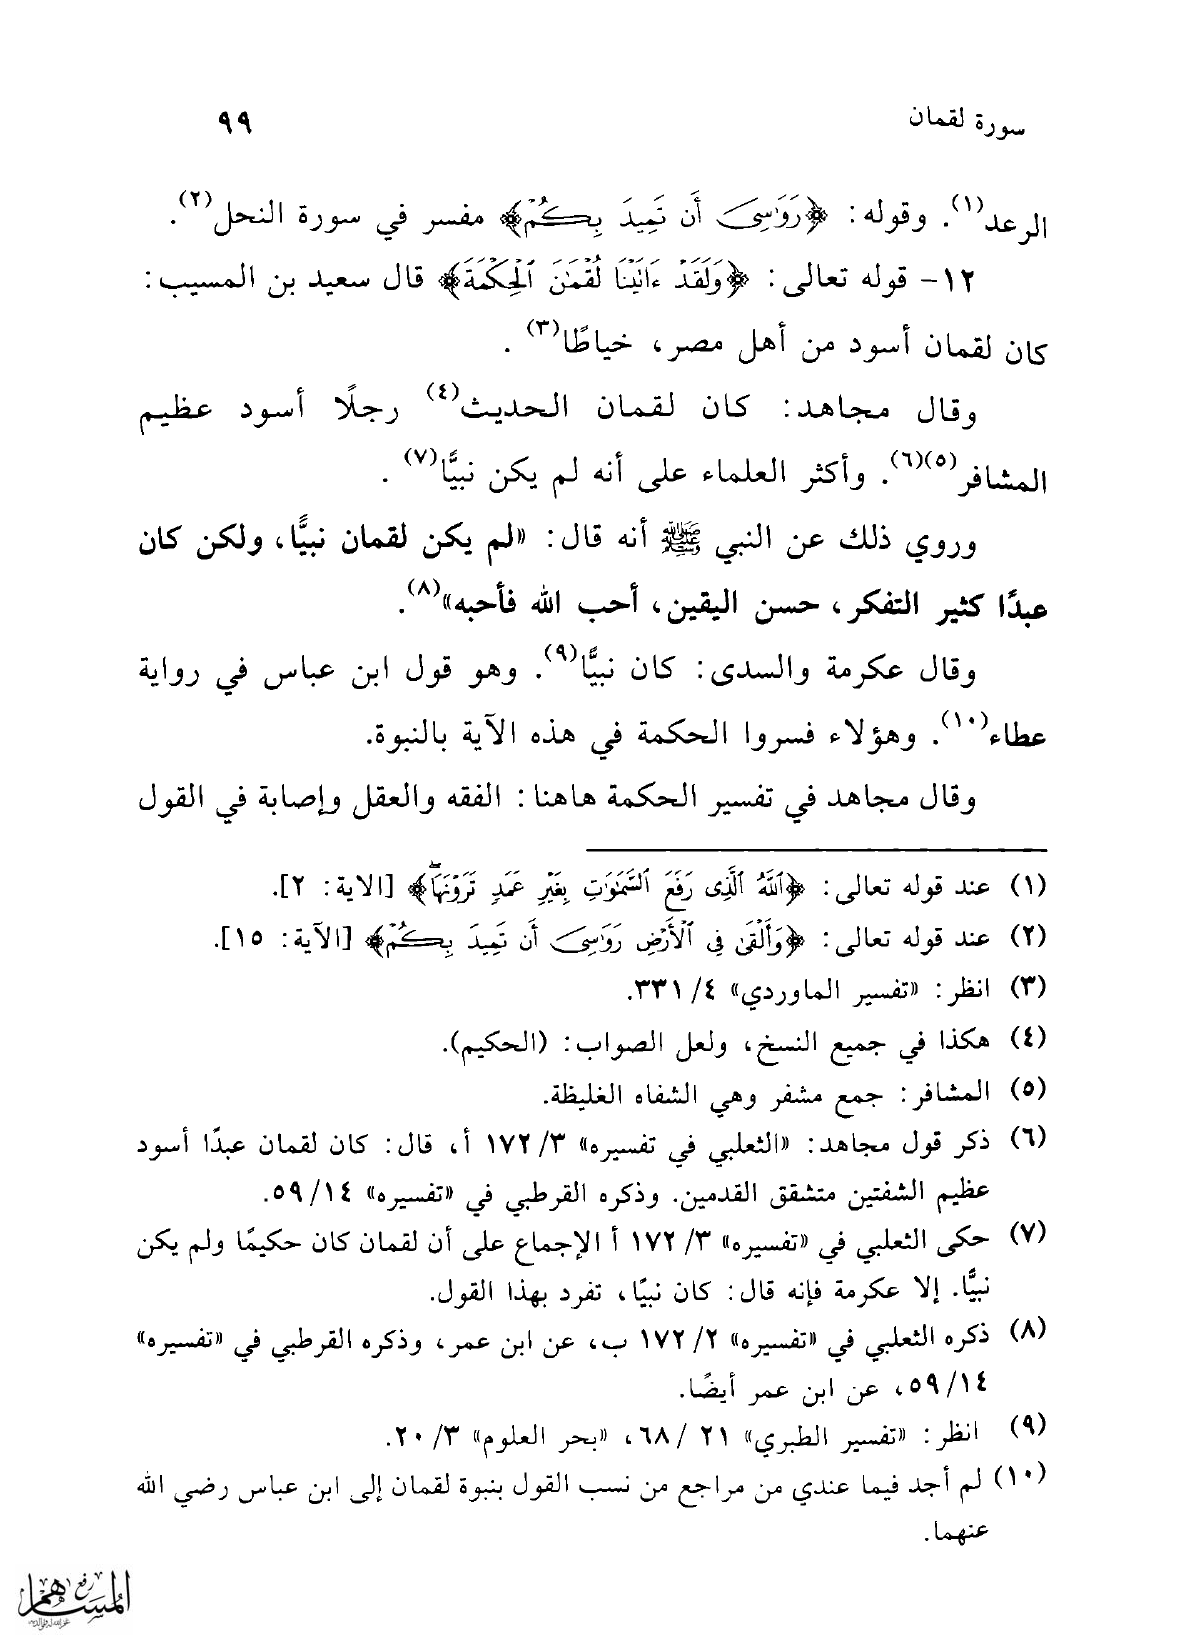 سورة لقمان ٩٩
الرعد(١). وقوله: ﴿رَوَٰسِىَ أَن تَمِيدَ بِكُمْ﴾ مفسر في سورة النحل(٢).
١٢- قوله تعالى: ﴿وَلَقَدْ ءَاتَيْنَا لُقْمَٰنَ ٱلْحِكْمَةَ﴾ قال سعيد بن المسيب:
كان لقمان أسود من أهل مصر، خياطًا(٣) .
وقال مجاهد: كان لقمان الحديث(٤) رجلًا أسود عظيم
المشافر(٥)(٦). وأكثر العلماء على أنه لم يكن نبيًّا(٧) .
وروي ذلك عن النبي ﷺ أنه قال: «لم يكن لقمان نبيًّا، ولكن كان
عبدًا كثير التفكر، حسن اليقين، أحب الله فأحبه»(٨).
وقال عكرمة والسدى: كان نبيًّا(٩). وهو قول ابن عباس في رواية
عطاء(١٠). وهؤلاء فسروا الحكمة في هذه الآية بالنبوة.
وقال مجاهد في تفسير الحكمة هاهنا: الفقه والعقل وإصابة في القول
(١) عند قوله تعالى: ﴿ٱللَّهُ ٱلَّذِى رَفَعَ ٱلسَّمَٰوَٰتِ بِغَيْرِ عَمَدٍ تَرَوْنَهَا ۖ﴾ [الاية: ٢].
(٢) عند قوله تعالى: ﴿وَأَلْقَىٰ فِى ٱلْأَرْضِ رَوَٰسِىَ أَن تَمِيدَ بِكُمْ﴾ [الآية: ١٥].
(٣) انظر: «تفسير الماوردي» ٤/ ٣٣١.
(٤) هكذا في جميع النسخ، ولعل الصواب: (الحكيم).
(٥) المشافر: جمع مشفر وهي الشفاه الغليظة.
(٦) ذكر قول مجاهد: «الثعلبي في تفسيره» ٣/ ١٧٢ أ، قال: كان لقمان عبدًا أسود
عظيم الشفتين متشقق القدمين. وذكره القرطبي في «تفسيره» ١٤/ ٥٩.
(٧) حكى الثعلبي في «تفسيره» ٣/ ١٧٢ أ الإجماع على أن لقمان كان حكيمًا ولم يكن
نبيًّا. إلا عكرمة فإنه قال: كان نبيًا، تفرد بهذا القول.
(٨) ذكره الثعلبي في «تفسيره» ٢/ ١٧٢ ب، عن ابن عمر، وذكره القرطبي في «تفسيره»
١٤/ ٥٩، عن ابن عمر أيضًا.
(٩) انظر: «تفسير الطبري» ٢١ /٦٨، «بحر العلوم» ٣/ ٢٠.
(١٠) لم أجد فيما عندي من مراجع من نسب القول بنبوة لقمان إلى ابن عباس رضي الله
عنهما.